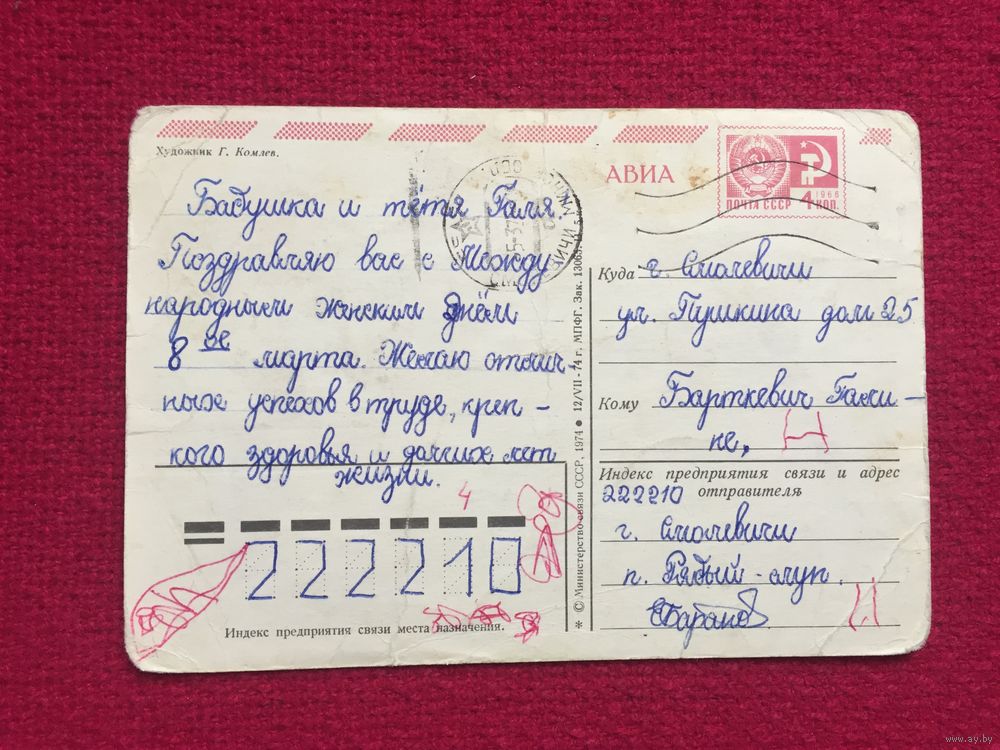 Художник Г. Комлев.
АВИА
ПОЧТА СССР
4 КОП.
1966
Бабушка и тётя Галя.
Поздравляю вас с Между
народным женским днём
8 ое марта. Желаю отлич-
ных успехов в труде, креп-
кого здоровья и долгих лет
жизни.
4
222210
Индекс предприятия связи места назначения.
* © Министерство связи СССР, 1974 ● 12/VII-74 г. МПФГ. Зак. 13063.
Куда г. Смолевичи
ул. Пушкина дом 25
Кому Барткевич Гали-
не,
Н
Индекс предприятия связи и адрес
отправителя
222210
г. Смолевичи
п. Рядый-слуп.
www.ay.by